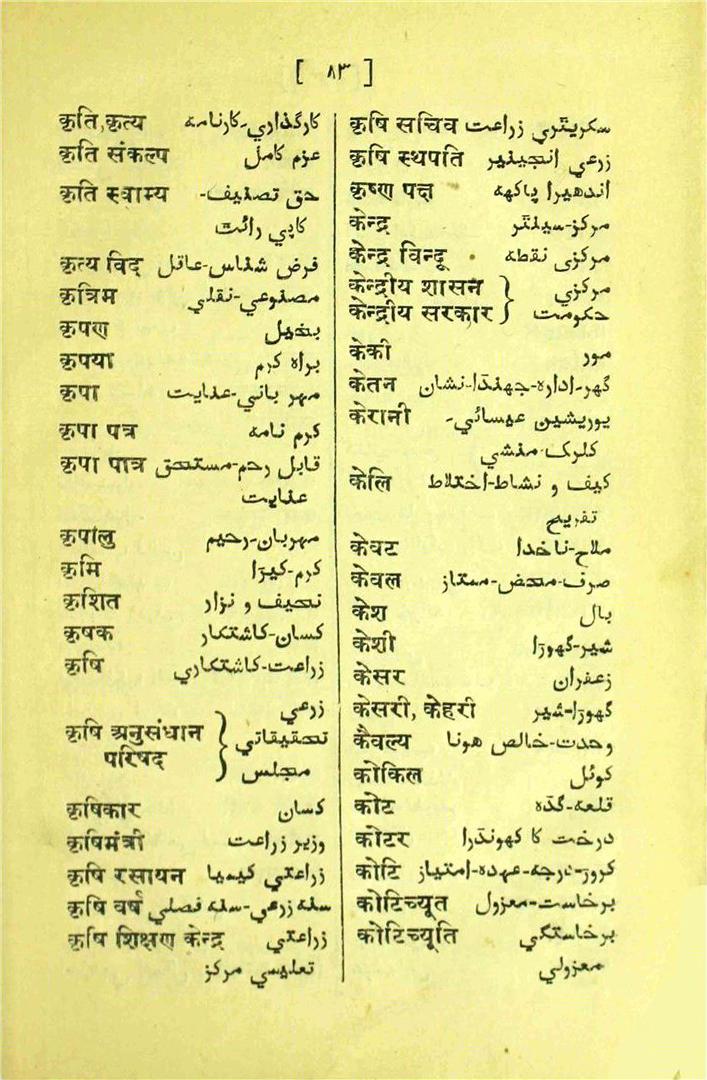 [ ۸۳ ]
कृति,कृत्य کارگذاري-کارنامه
कृति संकल्प عزم کامل
कृति स्वाम्य حق تصنیف-
کاپي رائت
कृत्य विद् فرض شناس-عاقل
कृत्रिम مصنوعي-نقلي
कृपण بخیل
कृपया براه کرم
कृपा مهر باني-عنایت
कृपा पत्र کرم نامه
कृपा पात्र قابل رحم-مستحق
عنایت
कृपालु مهربان-رحیم
कृमि کرم-کیڑا
कृशित نحیف و نزار
कृषक کسان-کاشتکار
कृषि زراعت-کاشتکاري
زرعي
कृषि अनुसंधान } تحقیقاتي
परिषद् مجلس
कृषिकार کسان
कृषिमंत्री وزیر زراعت
कृषि रसायन زراعتي کیمیا
कृषि वर्ष سنه زرعي-سنه فصلي
कृषि शिक्षण केन्द्र زراعتي
تعلیمي مرکز
कृषि सचिव سکریٹري زراعت
कृषि स्थपति زرعي انجینیر
कृष्ण पक्ष اندهیرا پاکهه
केन्द्र مرکز-سینٹر
केन्द्र विन्दू مرکزی نقطه
केन्द्रीय शासन } مرکزي
केन्द्रीय सरकार حکومت
केकी مور
केतन گهر-اداره-جهنڈا-نشان
केरानी یوریشین عیسائي-
کلرک-منشي
केलि کیف و نشاط-اختلاط
تفریح
केवट ملاح-ناخدا
केवल صرف-محض-ممتاز
केश بال
केशी شیر-گهوڑا
केसर زعفران
केसरी, केहरी گهوڑا-شیر
कैवल्य وحدت-خالص هونا
कोकिल کوئل
कोट قلعه-گڈه
कोटर درخت کا کهونڈرا
कोटि کروڑ-درجه-عهده-امتیاز
कोटिच्यूत برخاست-معزول
कोटिच्यूति برخاستگي
معزولي